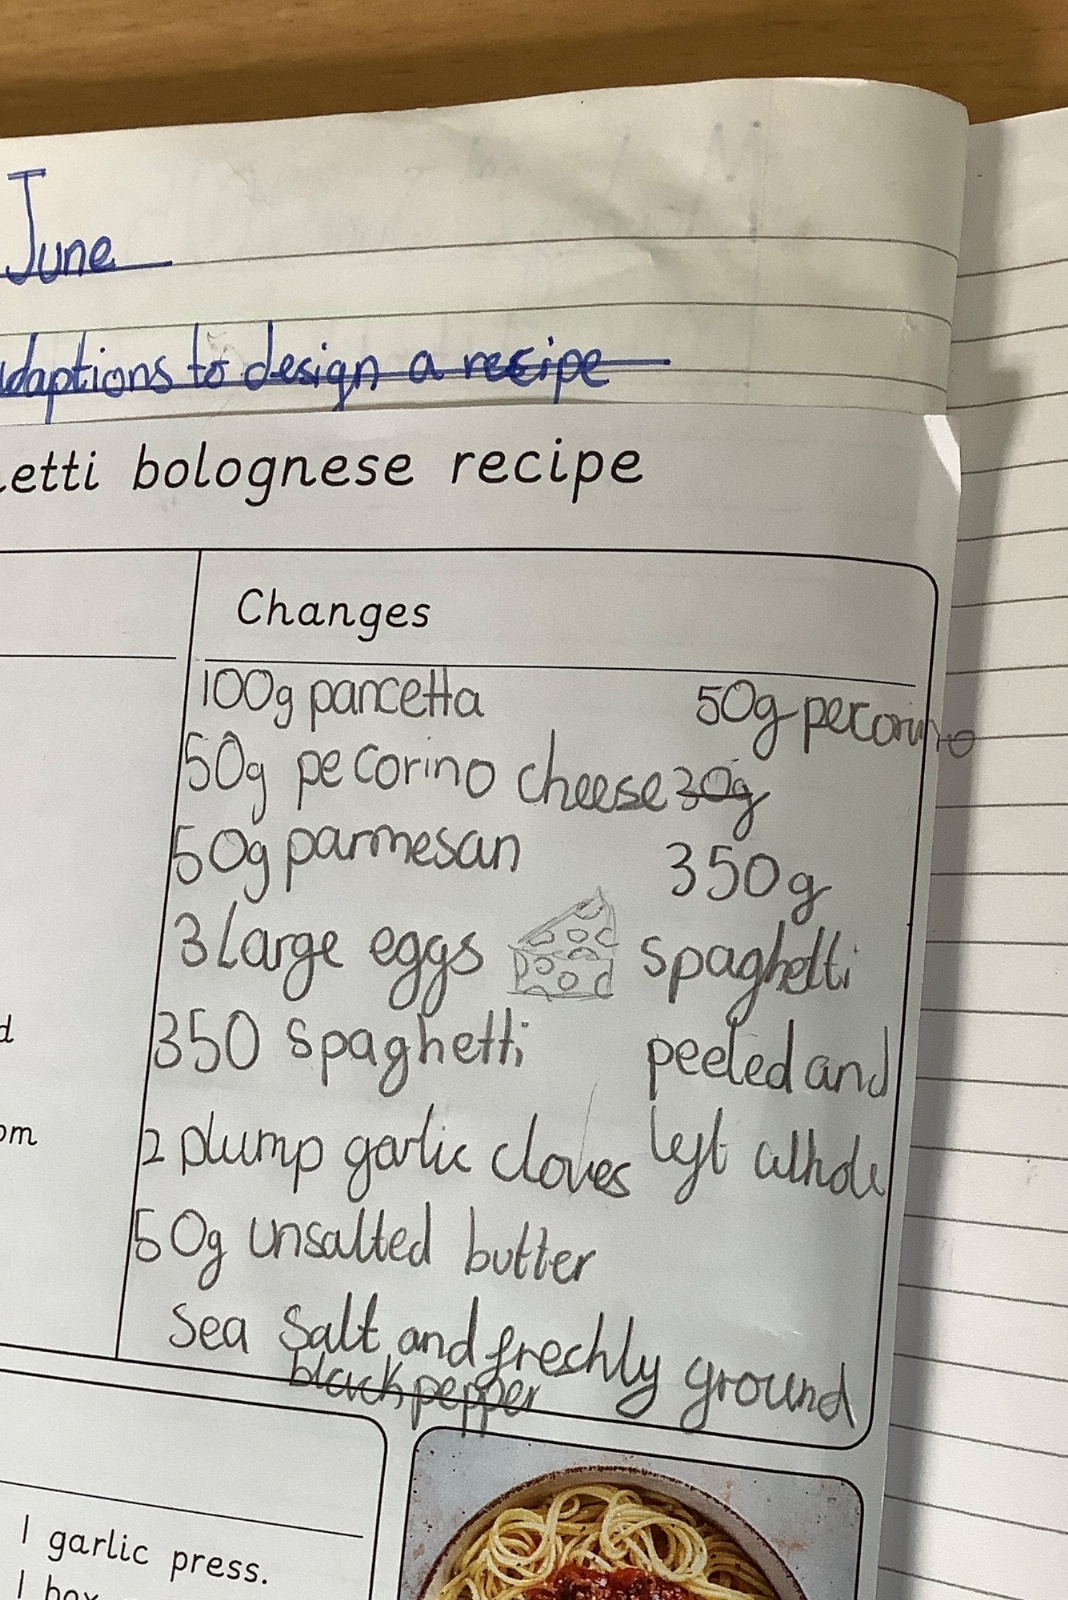 June
daptions to design a recipe
etti bolognese recipe
Changes
100g pancetta 50g pecorino
50g pecorino cheese 30g
50g parmesan 350g
3 large eggs spaghetti
350 spaghetti peeled and
2 plump garlic cloves left whole
50g unsalted butter
Sea Salt and freshly ground
black pepper
d
om
1 garlic press.
1 box